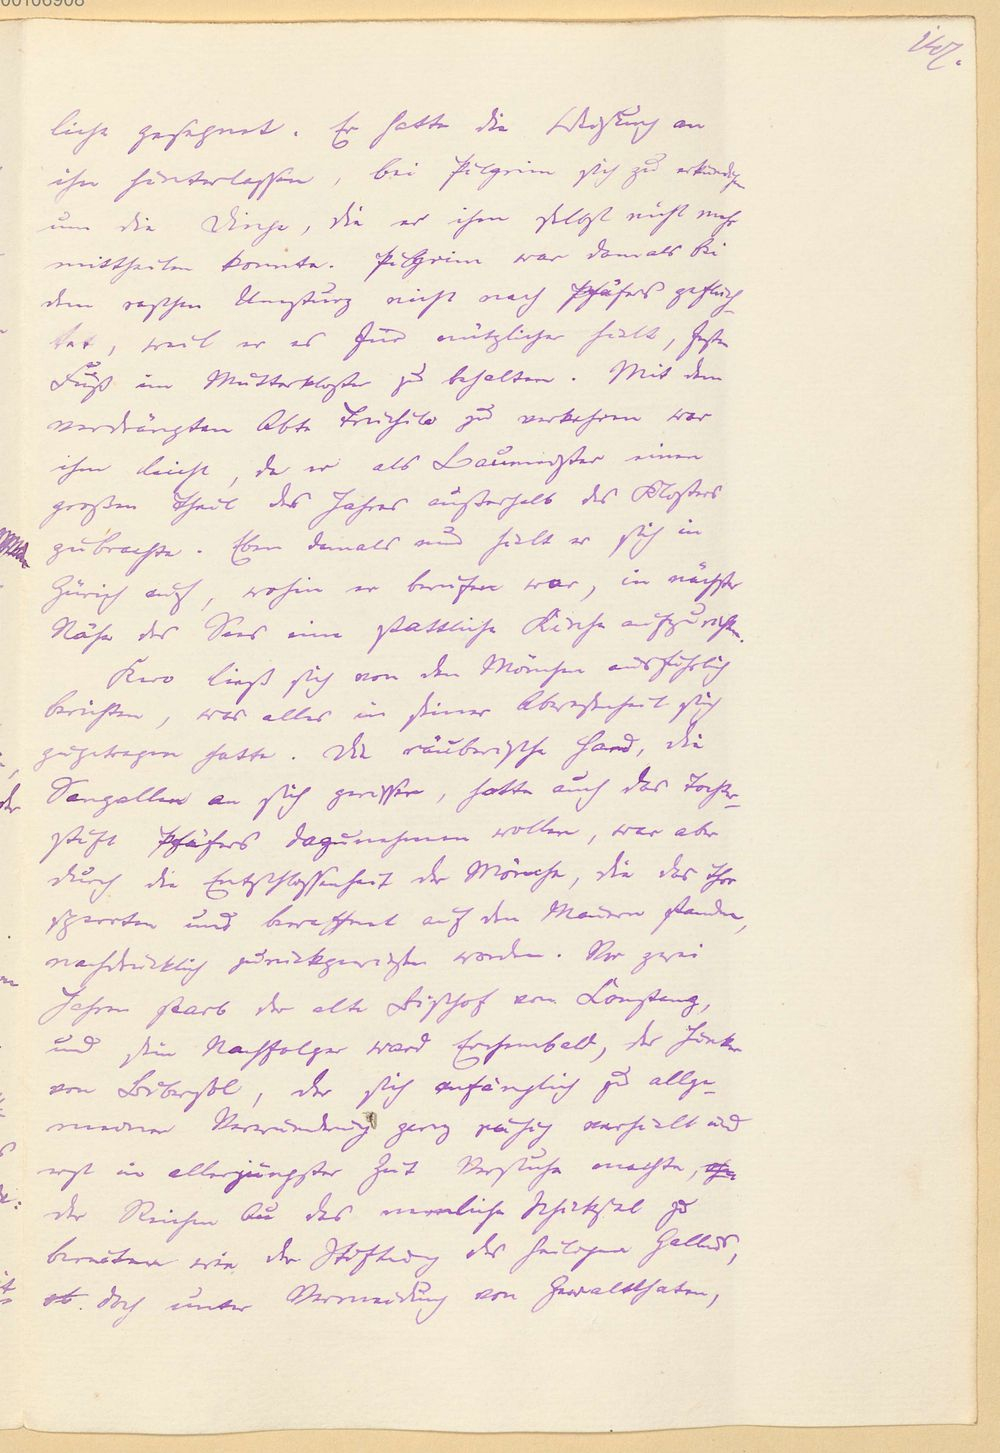 00106908
147.
licht gesegnet. Er hatte die Weisung an
ihn hinterlassen, bei Pilgrim sich zu erkundigen
um die Dinge, die er ihm selbst nicht mehr
mittheilen konnte. Pilgrim war damals bei
dem raschen Umsturz nicht nach Pfäfers geflüch-
tet, weil er es für nützlicher hielt, festen
Fuß im Mutterkloster zu behalten. Mit dem
verdrängten Abte zu verkehren war
ihm leicht, da er als Baumeister einen
großen Theil des Jahres außerhalb des Klosters
zubrachte. Eben damals nun hielt er sich in
Zürich auf, wohin er berufen war, in nächster
Nähe des Sees eine stattliche Kirche aufzurichten.
Kero ließ sich von den Mönchen ausführlich
berichten, was alles in seiner Abwesenheit sich
zugetragen hatte. Die räuberische Hand, die
Sangallen an sich gerissen, hatte auch das Tochter-
stift Pfäfers dazunehmen wollen, war aber
durch die Entschlossenheit der Mönche, die das Thor
sperrten und bewaffnet auf den Mauern standen,
nachdrücklich zurückgewiesen worden. Vor zwei
Jahren starb der alte Bischof von Constanz,
und sein Nachfolger ward Erchembald, der Junker
von der sich anfänglich zu allge-
meiner Verwunderung ganz ruhig verhielt und
erst in allerjüngster Zeit Versuche machte,
der Reichen Au das nämliche Schicksal zu
bereiten wie der Stiftung des heiligen Gallus,
doch unter Vermeidung von Gewaltthaten,